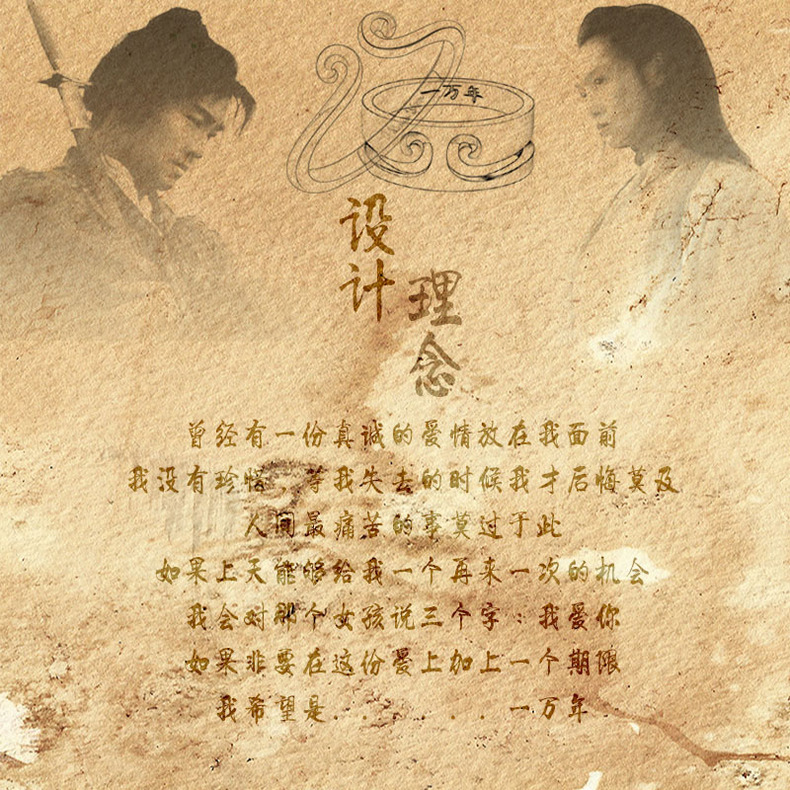 一万年
设计
理念
曾经有一份真诚的爱情放在我面前
我没有珍惜 等我失去的时候我才后悔莫及
人间最痛苦的事莫过于此
如果上天能够给我一个再来一次的机会
我会对那个女孩说三个字：我爱你
如果非要在这份爱上加上一个期限
我希望是......一万年